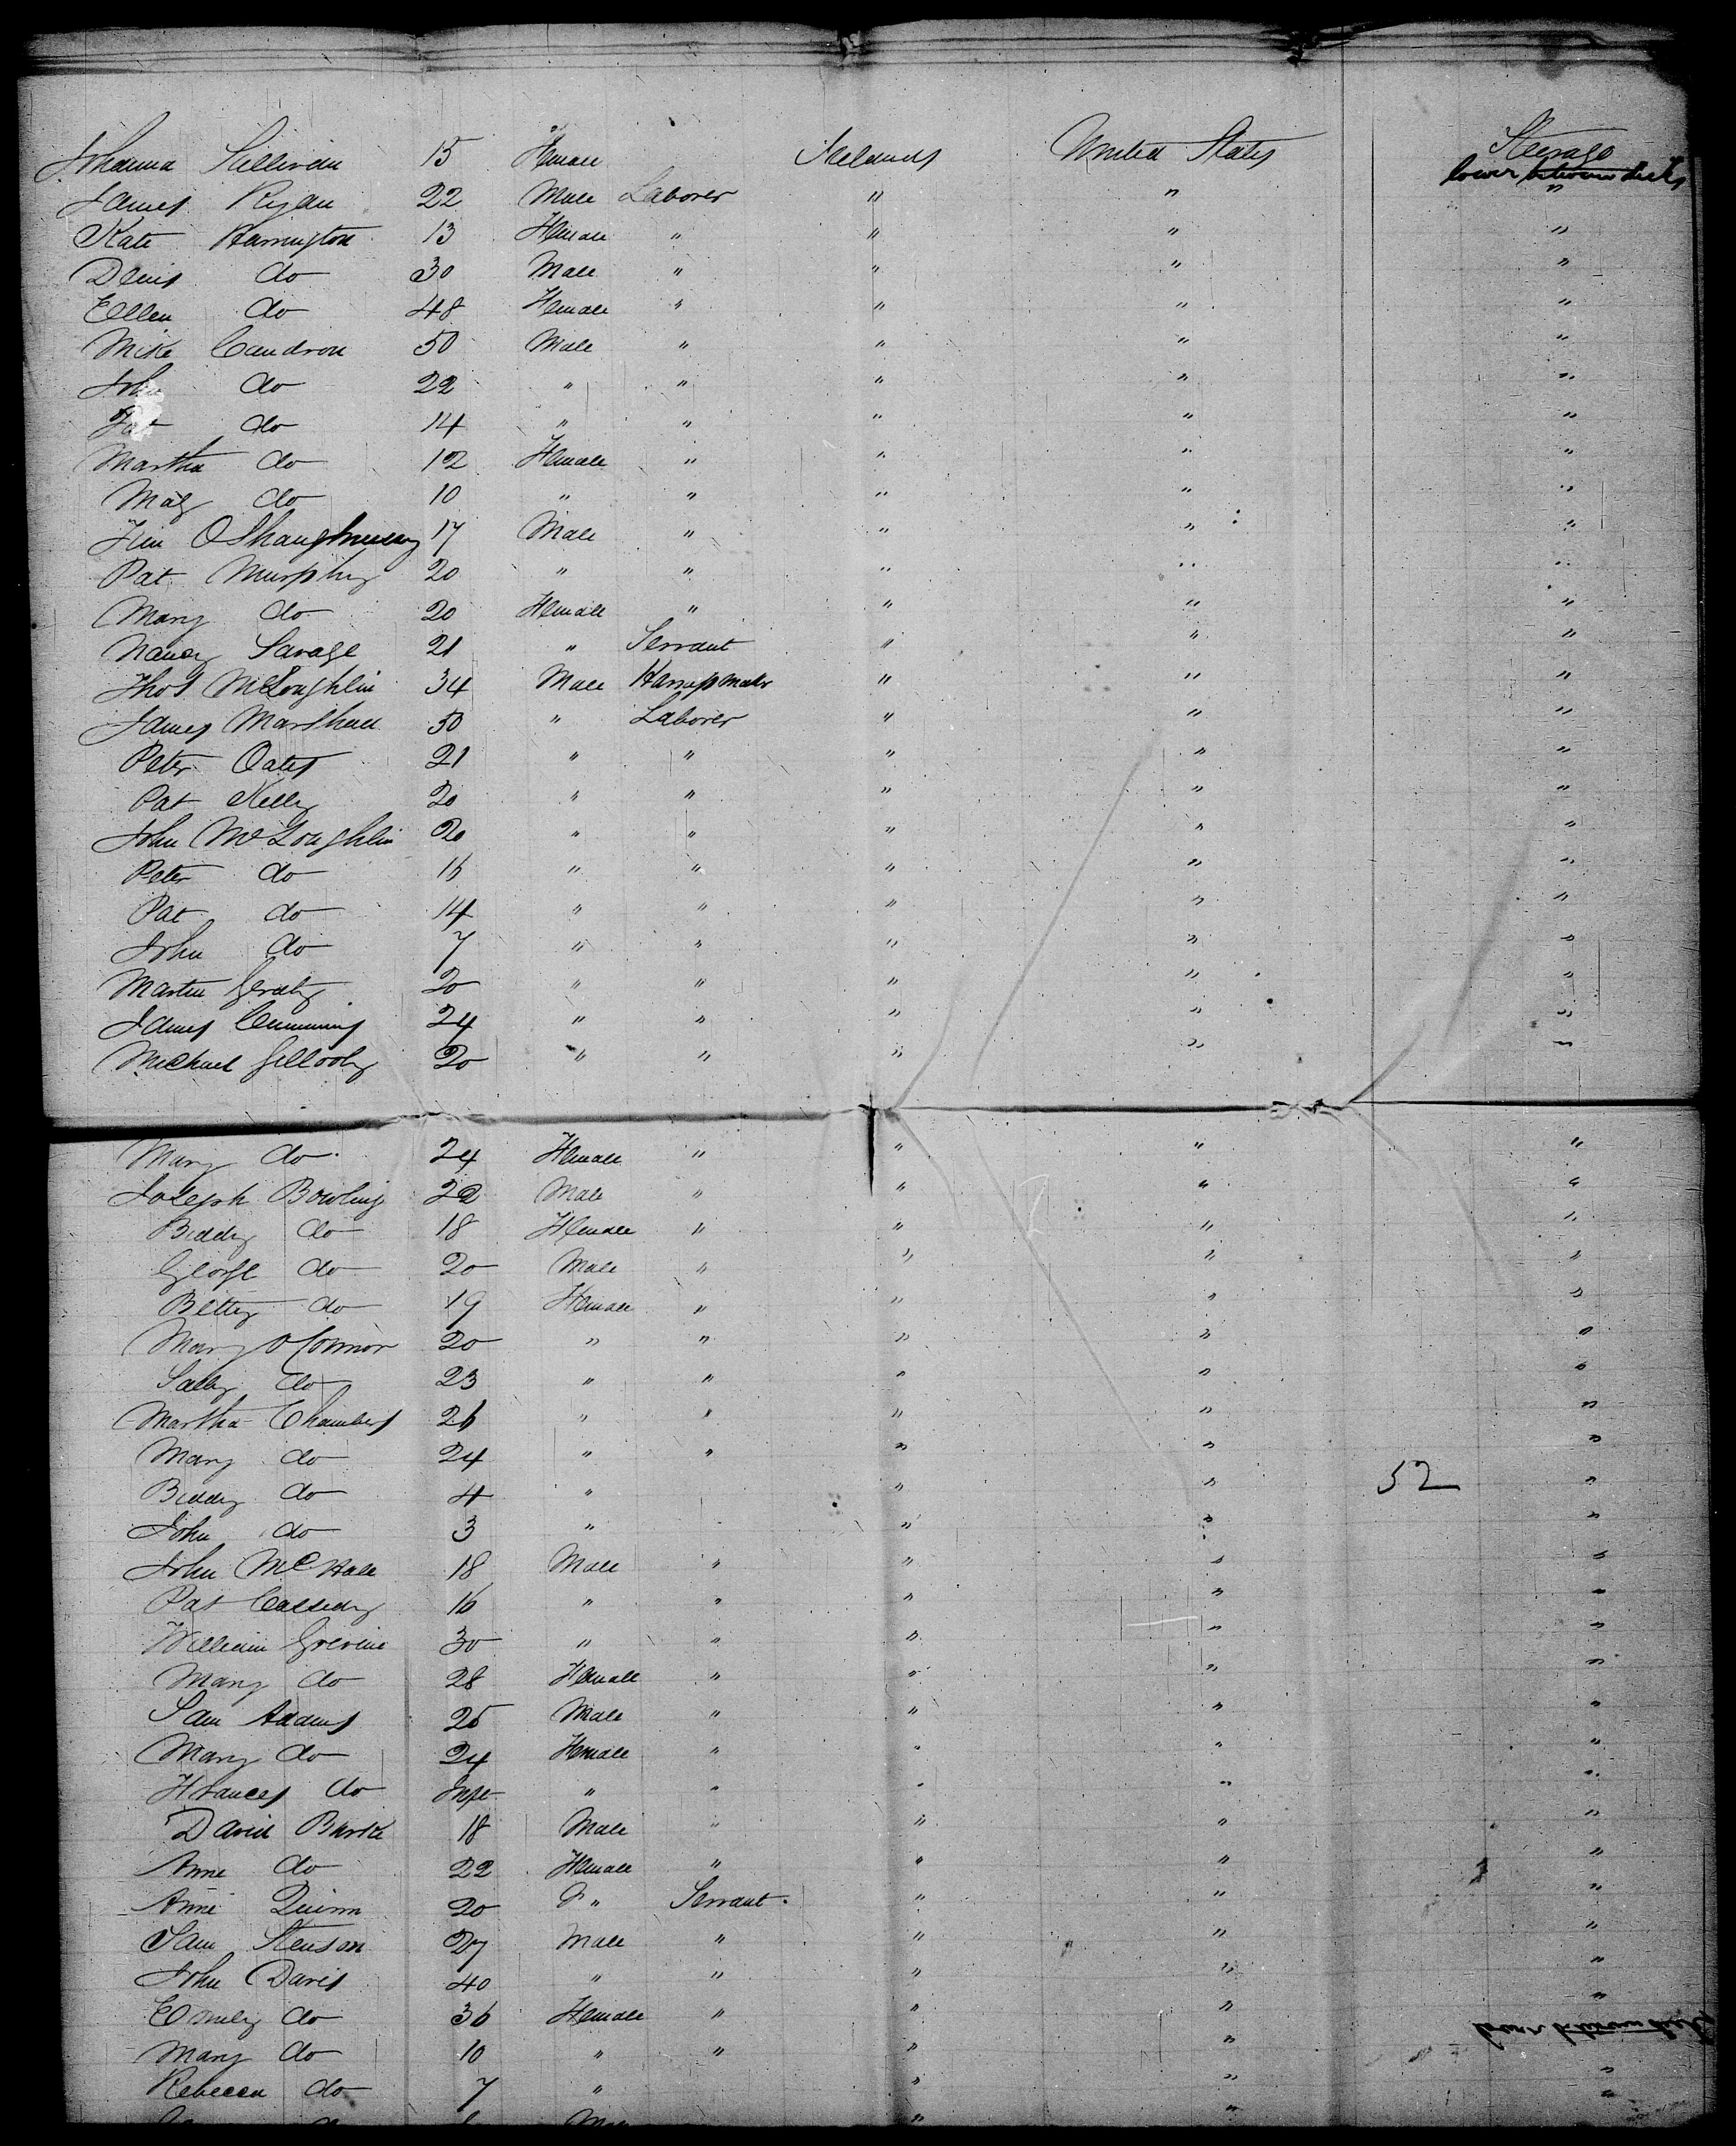 Johanna Sullivan 15 Female Ireland United States Steerage
lower between decks
James Ryan 22 Male Laborer " " "
Kate Harrington 13 Female " " " "
Denis do 30 Male " " " "
Ellen do 48 Female " " " "
Mike Candron 50 Male " " " "
John do 22 " " " " "
Pat do 14 " " " " "
Martha do 12 Female " " " "
Mag do 10 " " " " "
Jim OShaughnessy 17 Male " " " "
Pat Murphy 20 " " " " "
Mary do 20 Female " " " "
Nancy Savage 21 " Servant " " "
Thos McLoughlin 34 Male " " "
James Marshall 50 " Laborer " " "
Peter Oates 21 " " " " "
Pat Kelly 20 " " " " "
John McLoughlin 20 " " " " "
Peter do 16 " " " " "
Pat do 14 " " " " "
John do 7 " " " " "
Martin Geraty 20 " " " " "
James Cummins 24 " " " " "
Michael Gillooly 20 " " " " "
Mary do 24 Female " " " "
Joseph Bowling 22 Male " " " "
Biddy do 18 Female " " " "
George do 20 Male " " " "
Betty do 19 Female " " " "
Mary O Connor 20 " " " " "
Sally do 23 " " " " "
Martha Chambers 26 " " " " "
Mary do 24 " " " " "
Biddy do 4 " " " 52 "
John do 3 " " " "
John McHale 18 Male " " " "
Pat Cassedy 16 " " " " "
William 30 " " " " "
Mary do 28 Female " " " "
Sam Adams 25 Male " " " "
Mary do 24 Female " " " "
Frances do Inft " " " " "
David Burke 18 Male " " " "
Anne do 22 Female " " " "
Anne Quinn 20 " Servant " " "
Sam Stenson 27 Male " " " "
John Davis 40 " " " " "
Emily do 36 Female " " " "
lower between decks
Mary do 10 " " " "
Rebecca do 7 " " " "